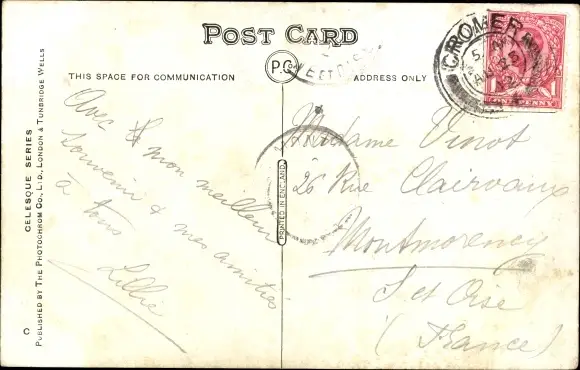 POST CARD
P.Co
THIS SPACE FOR COMMUNICATION
ADDRESS ONLY
CROMER
PENNY
Avec mon meilleur
souvenir & mes amitiés
à tous
Lillie
Madame Vinot
26 Rue Clairvaux
Montmorency
S et Oise
(France)
PRINTED IN ENGLAND
CELESQUE SERIES
PUBLISHED BY THE PHOTOCHROM CO., LTD., LONDON & TUNBRIDGE WELLS
C